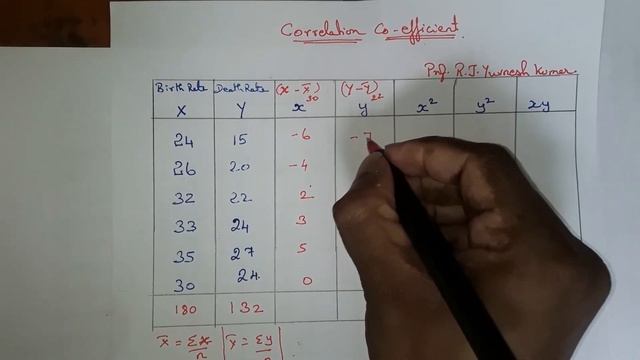 Correlation Co-efficient.
Prof. R.J. Yuvnesh Kumar.
Birth Rate Death Rate (X - X̄) (Y - Ȳ)
X Y x 30 y 22 x² y² xy
24 15 -6 -7
26 20 -4
32 22 2
33 24 3
35 27 5
30 24 0
180 132
x̄ = Σx/n | Ȳ = Σy/n